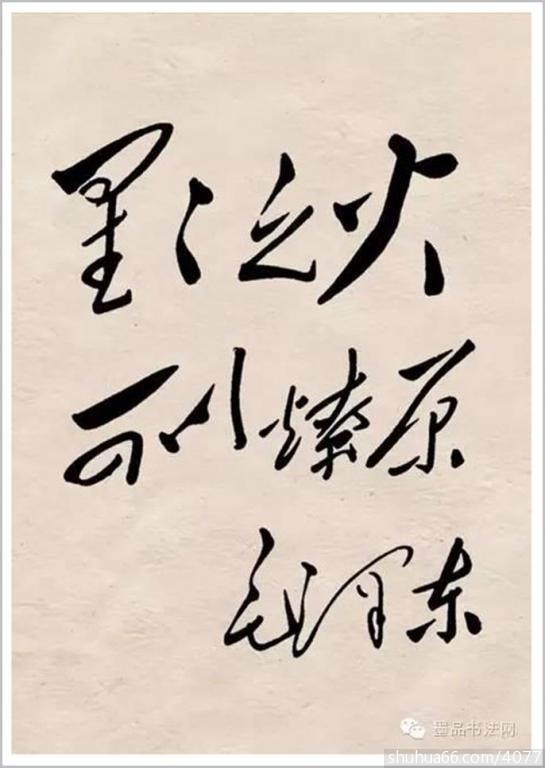 星〻之火
可以燎原
毛泽东
墨品书法网
shuhua66.com/4077